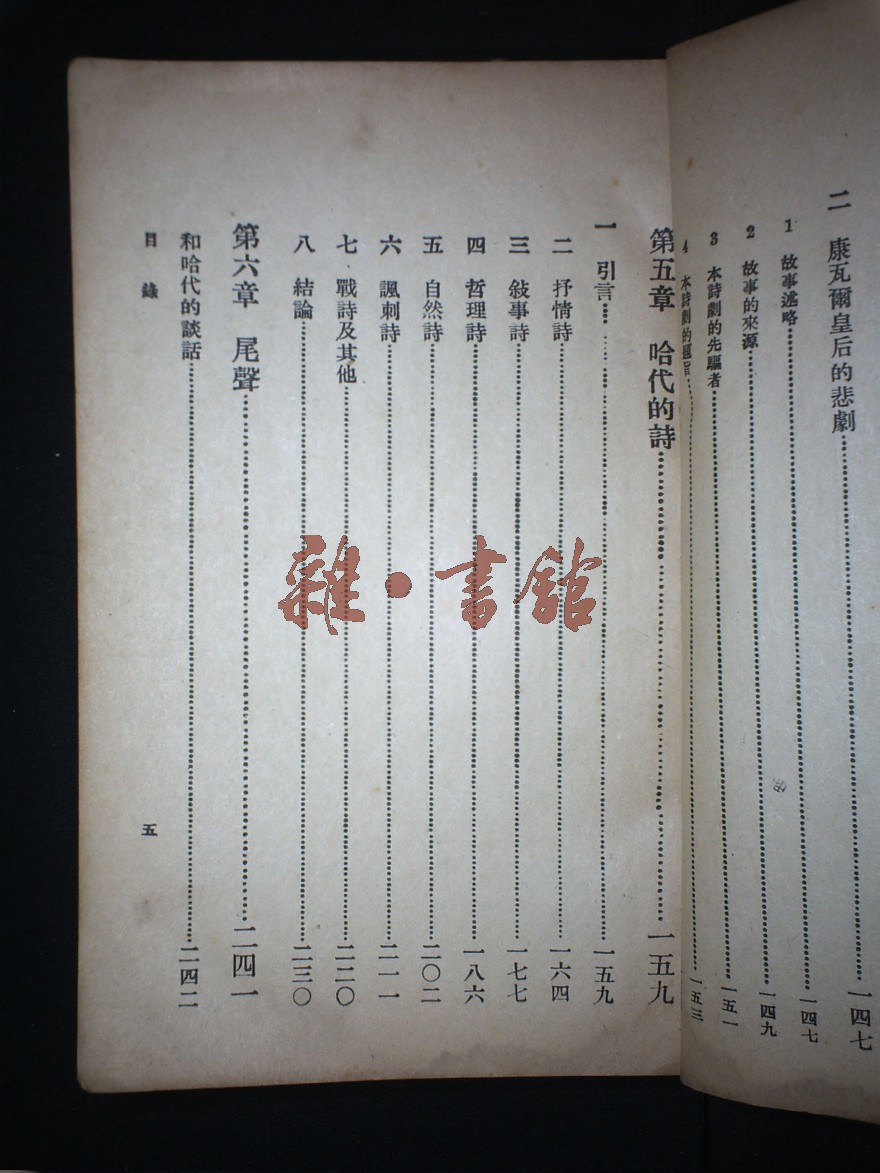 二 康瓦爾皇后的悲劇……一四七
1 故事述略……一四七
2 故事的來源……一四九
3 本詩劇的先驅者……一五一
4 本詩劇的題旨……一五三
第五章 哈代的詩……一五九
一 引言……一五九
二 抒情詩……一六四
三 敍事詩……一七七
四 哲理詩……一八六
五 自然詩……二〇二
六 諷刺詩……二一一
七 戰詩及其他……二二〇
八 結論……二三〇
第六章 尾聲……二四一
和哈代的談話……二四二
目錄
五
雜·書館